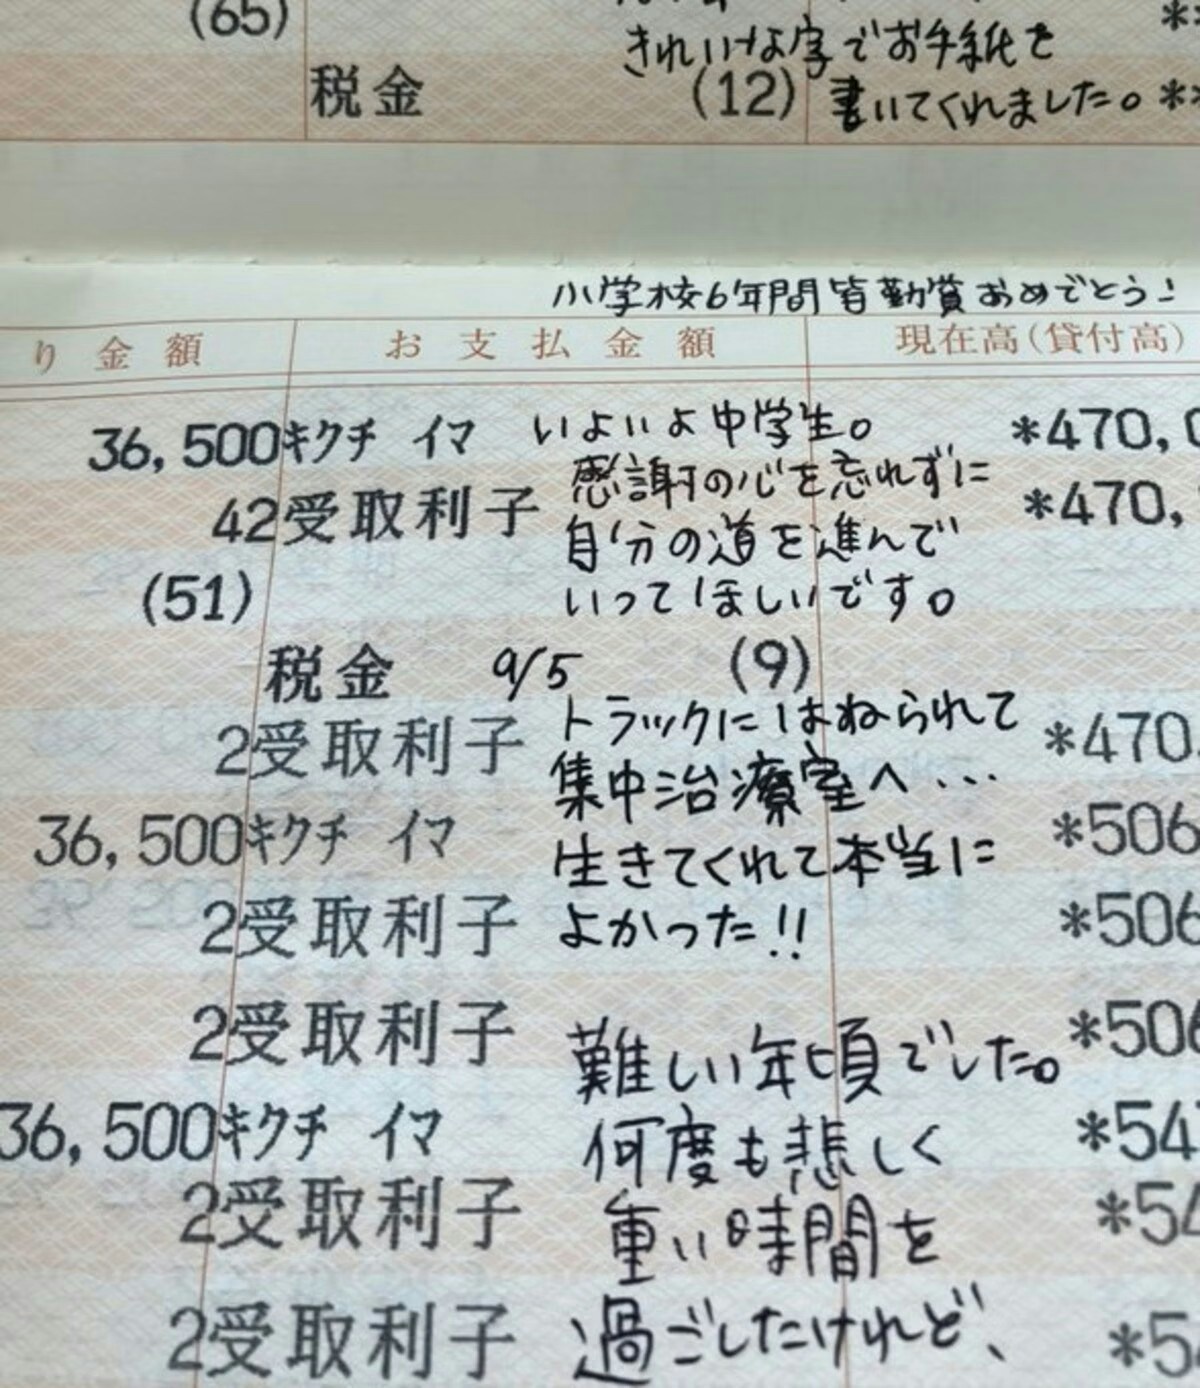 (65)
きれいな字でお手紙を
税金 (12) 書いてくれました。 **
小学校6年間皆勤賞おめでとう!
り金額 お支払金額 現在高(貸付高)
36,500 キクチ イマ いよいよ中学生。 *470,0
感謝の心を忘れずに
42 受取利子 *470,
自分の道を進んで
(51) いってほしいです。
税金 9/5 (9)
トラックにはねられて
2 受取利子 *470,
集中治療室へ...
36,500 キクチ イマ *506
生きてくれて本当に
2 受取利子 よかった!! *506
2 受取利子 *506
難しい年頃でした。
36,500 キクチ イマ 何度も悲しく *54
2 受取利子 重い時間を *54
2 受取利子 過ごしたけれど、 *5